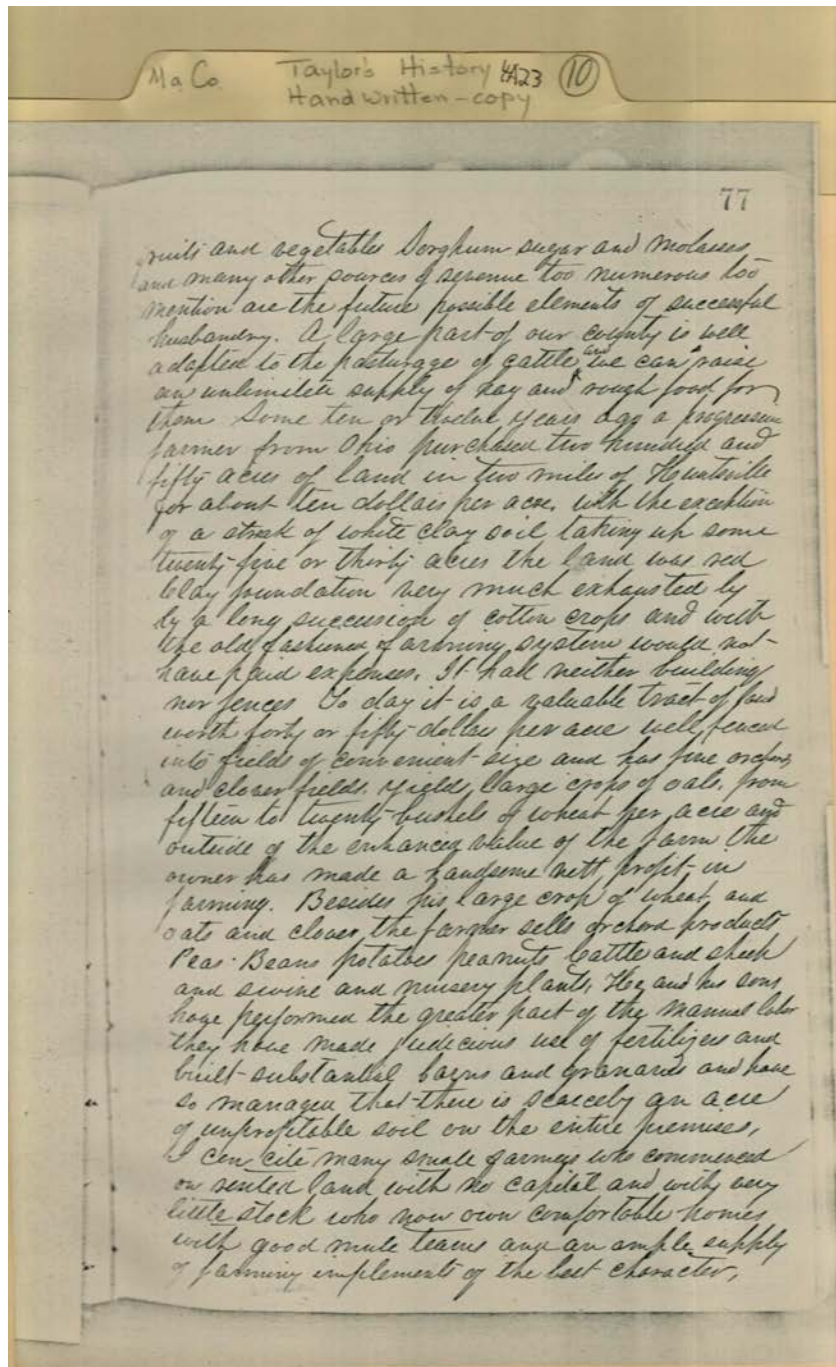 Ma Co. Taylor's History 4A23 10
Handwritten - copy
77
fruits and vegetables Sorghum sugar and molasses
and many other sources of revenue too numerous too
mention are the future possible elements of successful
husbandry. A large part of our county is well
adapted to the pasturage of cattle and we can raise
an unlimited supply of hay and rough food for
them Some ten or twelve years ago a progressive
farmer from Ohio purchased two hundred and
fifty acres of land in two miles of Huntsville
for about ten dollars per acre. with the exception
of a streak of white clay soil taking up some
twenty five or thirty acres the land was red
Clay foundation very much exhausted by
by a long succession of cotton crops and with
the old fashioned farming system would not
have paid expenses. It had neither building
nor fences To day it is a valuable tract of land
worth forty or fifty dollars per acre well fenced
into fields of convenient size and has fine orchards
and clover fields. yields large crops of oats. from
fifteen to twenty bushels of wheat per acre and
outside of the enhanced value of the farm the
owner has made a handsome nett profit in
farming. Besides his large crop of wheat and
oats and clover, the farmer sells orchard products
Peas - Beans potatoes peanuts cattle and sheep
and swine and nursery plants. He and his sons
have performed the greater part of the manual labor
they have made judicious use of fertilizers and
built substantial barns and granaries and have
so managed that there is scarcely an acre
of unprofitable soil on the entire premises,
I can cite many small farmers who commenced
on rented land with no capital and with very
little stock who now own comfortable homes
with good mule teams and an ample supply
of farming implements of the best character,